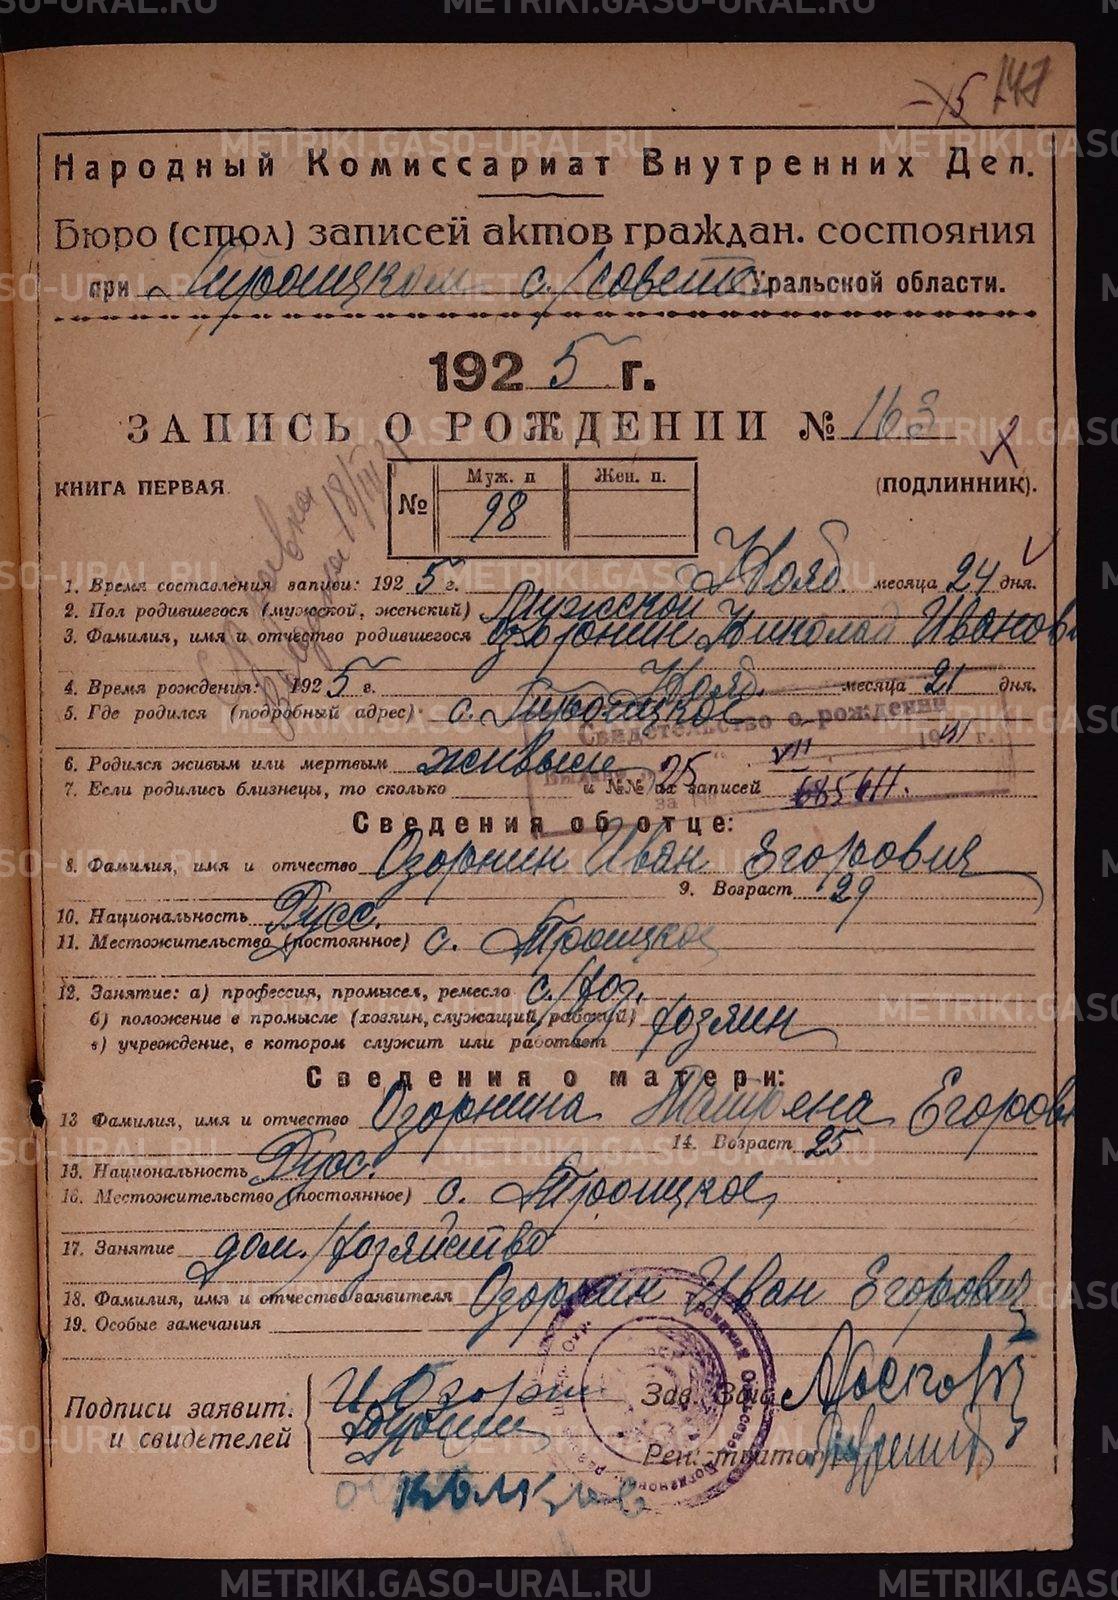 METRIKI.GASO-URAL.RU
- 5
Народный Комиссариат Внутренних Дел.
Бюро (стол) записей актов граждан. состояния
при Троицком с./совете Уральской области.
1925 г.
ЗАПИСЬ О РОЖДЕНИИ № 163
КНИГА ПЕРВАЯ.
(ПОДЛИННИК).
№ Муж. п Жен. п.
98
1. Время составления записи: 1925 г. Нояб. месяца 24 дня.
2. Пол родившегося (мужской, женский) Мужской
3. Фамилия, имя и отчество родившегося Озорнин Николай Иванов
4. Время рождения: 1925 г. Нояб. месяца 21 дня.
5. Где родился (подробный адрес) с. Троицкое
Свидетельство о рождении
6. Родился живым или мертвым живым
7. Если родились близнецы, то сколько и №№ их записей
25 VII 1941 г.
685611.
Сведения об отце:
8. Фамилия, имя и отчество Озорнин Иван Егорович
9. Возраст 29
10. Национальность Русс.
11. Местожительство (постоянное) с. Троицкое
12. Занятие: а) профессия, промысел, ремесло с./хоз.
б) положение в промысле (хозяин, служащий, рабочий) хозяин
в) учреждение, в котором служит или работает
Сведения о матери:
13 Фамилия, имя и отчество Озорнина Егоров
14. Возраст 25
15. Национальность Русс.
16. Местожительство (постоянное) с. Троицкое
17. Занятие дом./хозяйство
18. Фамилия, имя и отчество заявителя Озорнин Иван Егорович
19. Особые замечания
Подписи заявит. и свидетелей
И Озорнин
Зав. Загс
Регистратор